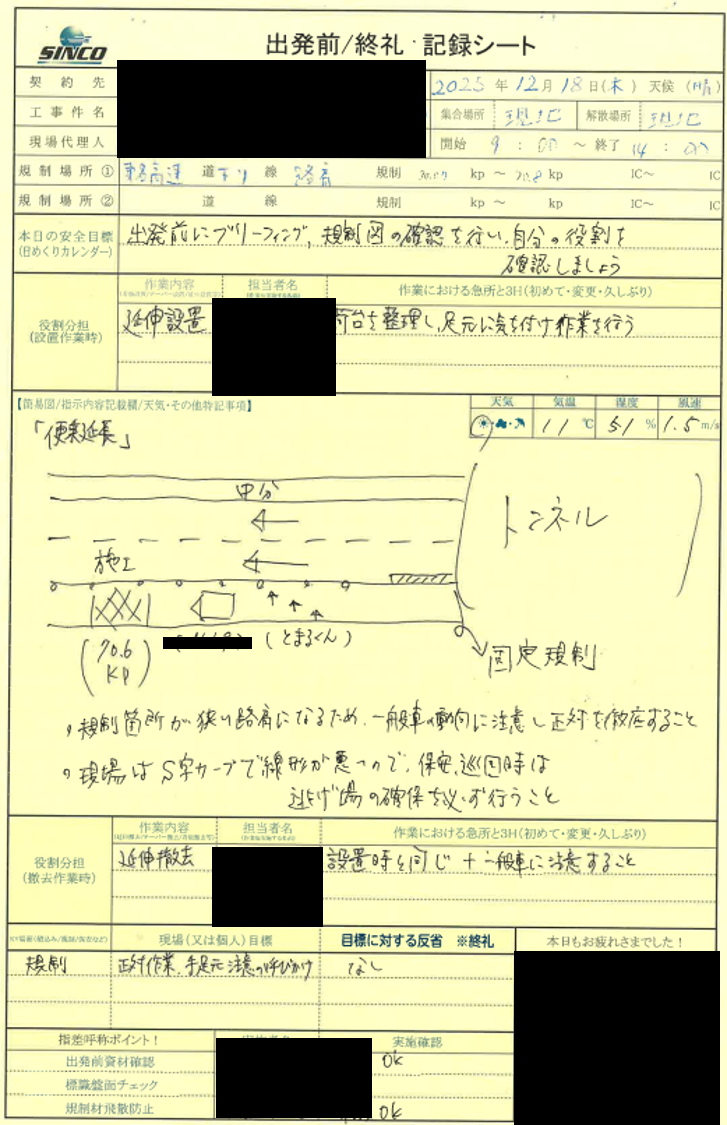 SINCO
出発前/終礼・記録シート
契約先
2025年12月18日(木) 天候(晴)
工事件名
集合場所 現地 解散場所 現地
現場代理人
開始 9:00～終了 14:00
規制場所① 道 下り 線 路肩 規制 kp～ kp IC～ IC
規制場所② 道 線 規制 kp～ kp IC～ IC
本日の安全目標
(日めくりカレンダー)
出発前にブリーフィング、規制図の確認を行い、自分の役割を
確認しましょう
作業内容 担当者名 作業における急所と3H(初めて・変更・久しぶり)
役割分担
(設置作業時)
延伸設置 荷台を整理し、足元に気を付け作業を行う
【簡易図/指示内容記載欄/天気・その他特記事項】
天気 気温 湿度 風速
11℃ 51% 1.5m/s
「便乗延長」
中分
トンネル
施工
(70.6
kp)
(とまるくん)
固定規制
・規制箇所が狭い路肩になるため、一般車の動向に注意し正対を徹底すること
・現場はS字カーブで線形が悪いので、保安、巡回時は
逃げ場の確保を必ず行うこと
作業内容 担当者名 作業における急所と3H(初めて・変更・久しぶり)
役割分担
(撤去作業時)
延伸撤去 設置時と同じ+一般車に注意すること
現場(又は個人)目標 目標に対する反省 ※終礼 本日もお疲れさまでした！
規制 正対作業、手足元注意の呼びかけ なし
指差呼称ポイント！ 実施確認
出発前資材確認 OK
標識盤面チェック
規制材飛散防止 OK